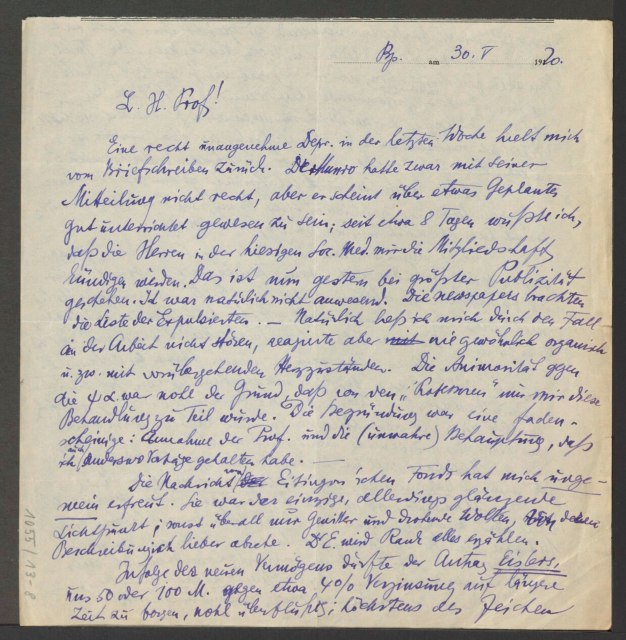 Bp. am 30. V 1920.
L. H. Prof!
Eine recht unangenehme Depr. in der letzten Woche hielt mich
vom Briefschreiben zurück. Munro hatte zwar mit seiner
Mitteilung nicht recht, aber er scheint über etwas Geplantes
gut unterrichtet gewesen zu sein; seit etwa 8 Tagen wußte ich,
daß die Herren in der hiesigen Soc. Med. mir die Mitgliedschaft
kündigen werden. Das ist nun gestern bei größter Publizität
geschehen. Ich war natürlich nicht anwesend. Die newspapers brachten
die Liste der Expulsierten. — Natürlich ließ ich mich durch den Fall
in der Arbeit nicht stören, reagirte aber wie gewöhnlich organisch
u. zw. mit vorübergehenden Herzzuständen. Die Animosität gegen
die ψα. war wohl der Grund, daß von den „ nur mir diese
Behandlung zu Teil wurde. Die Begründung war eine faden-
scheinige: Annahme der Prof. und die (unwahre) Behauptung, daß
ich auch anderswo Vorträge gehalten habe. —
Die Nachricht vom Eitingon'schen Fonds hat mich unge-
mein erfreut. Sie war der einzige, allerdings glänzende
Lichtpunkt; sonst überall nur Gewitter und drohende Wolken, deren
Beschreibung ich lieber abebe. Dr E. wird Rank alles erzählen.
Infolge des neuen Vermögens dürfte der Antrag Eislers,
uns 50 oder 100 M. gegen etwa 4% Verzinsung auf längere
Zeit zu borgen, wohl überflüssig; höchstens des Zeichen
1055/13-8